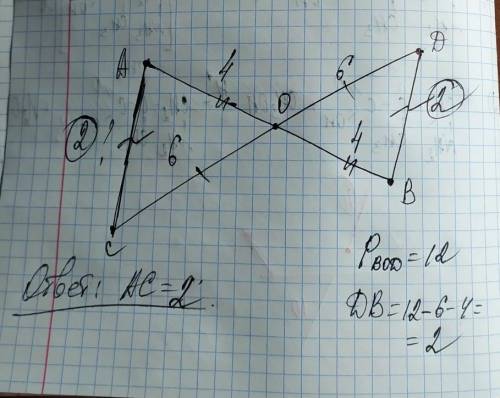 A
4
O
6
D
2
6
4
2
B
C
P_BOD = 12
DB = 12 - 6 - 4 =
= 2
Ответ: AC = 2.